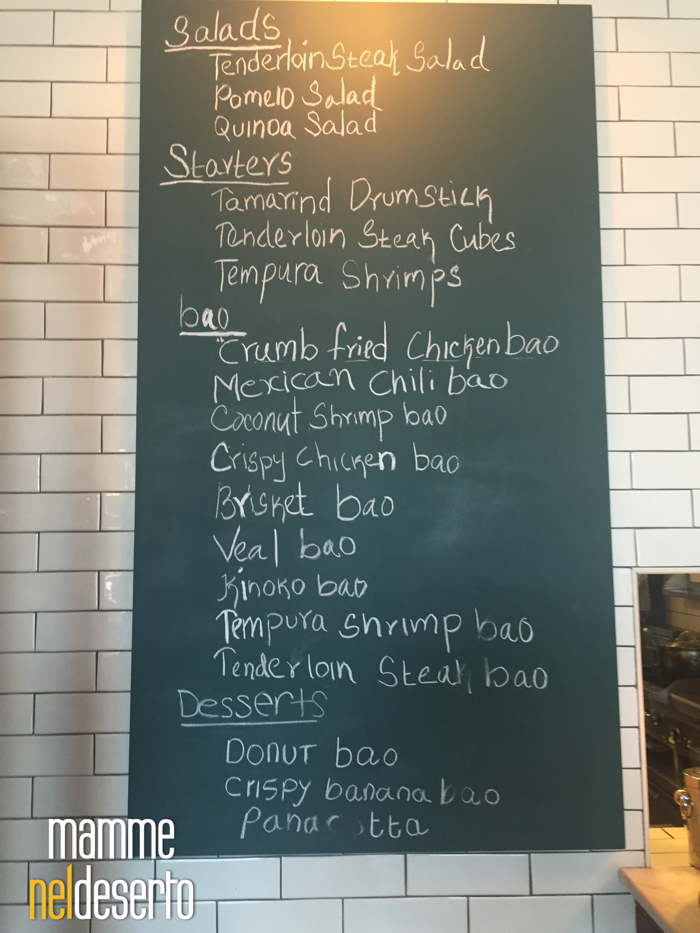 Salads
Tenderloin Steak Salad
Pomelo Salad
Quinoa Salad
Starters
Tamarind Drumstick
Tenderloin Steak Cubes
Tempura Shrimps
bao
Crumb fried Chicken bao
Mexican Chili bao
Coconut Shrimp bao
Crispy Chicken bao
Brisket bao
Veal bao
Kinoko bao
Tempura Shrimp bao
Tenderloin Steak bao
Desserts
Donut bao
Crispy banana bao
Panac tta
mamme
neldeserto